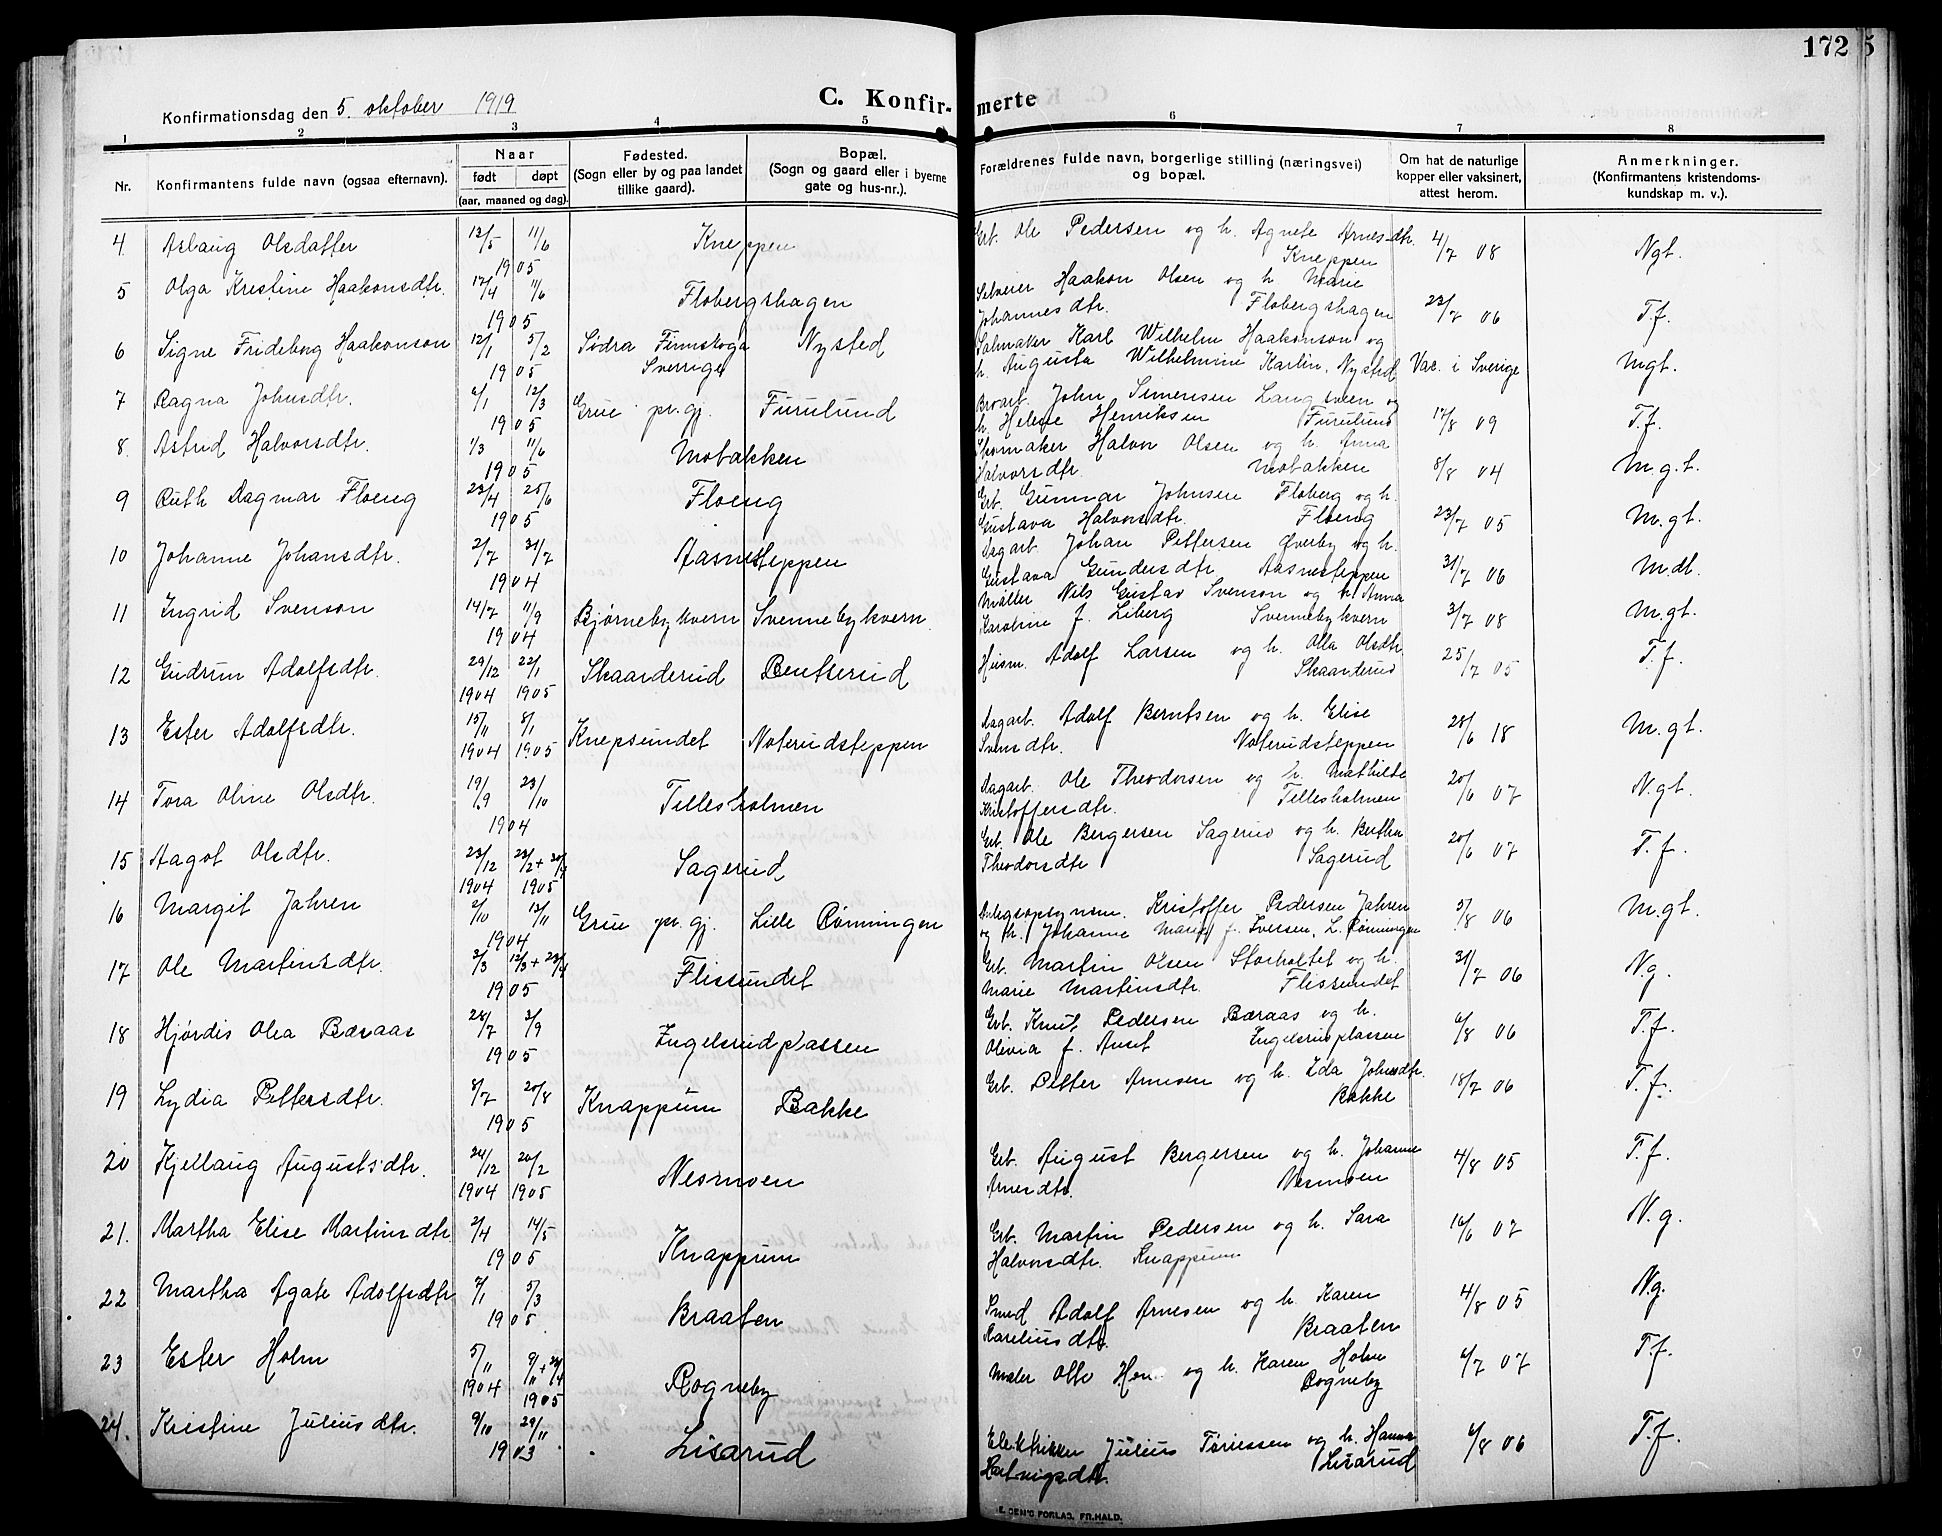 172 5
Konfirmationsdag den 5. oktober 1919
C. Konfir-merte
1 2 3 4 5 6 7 8
Nr. Konfirmantens fulde navn (ogsaa efternavn). Naar født døpt (aar, maaned og dag). Fødested. (Sogn eller by og paa landet tillike gaard). Bopæl. (Sogn og gaard eller i byerne gate og hus-nr.). Forældrenes fulde navn, borgerlige stilling (næringsvei) og bopæl. Om hat de naturlige kopper eller vaksinert, attest herom. Anmerkninger. (Konfirmantens kristendoms-kundskap m. v.).
4 Aslaug Olsdatter 13/5 11/6 Kneppen Grb. Ole Pedersen og h. Agnete Arnesdtr. 4/7 08 Ngt.
1905 Kneppen
5 Olga Kristine Haakonsdtr. 17/4 11/6 Flobergshagen Selveier Haakon Olsen og h. Marie
1905 Johannesdtr. Flobergshagen 22/7 06 T.f.
6 Signe Frideborg Haakonson 12/1 5/2 Södra Finnskoga Nysted Salmaker Karl Wilhelm Haakonson og
1905 Sverrige h. Augusta Wilhelmine Karlin, Nysted Vac. i Sverige Mgt.
7 Ragna Johnsdtr. 4/1 12/3 Grue pr.gj. Furulund Broarb. John Simensen Langsveen og
1905 h. Helene Henriksen Furulund 17/8 09 T.f.
8. Astrid Halvorsdtr. 1/3 11/6 Mobakken Skomaker Halvor Olsen og h. Anna
1905 Halvorsdtr. Mobakken 8/8 04 M.g.t.
9 Ruth Dagmar Floeng 23/4 25/6 Floeng Grb. Gunnar Johnsen Floberg og h.
1905 Gustava Halvorsdtr. Floeng 23/7 05 M.gt.
10 Johanne Johansdtr. 2/7 31/7 Aasnesteppen Dagarb. Johan Pettersen Øverby og h.
1904 Gustava Gundersdtr Aasnesteppen 31/7 06 M.dt.
11 Ingrid Svenson 14/7 11/9 Bjørnebykvern Svennebykvern Møller Nils Gustav Svenson og h. Anna
1904 Karoline f. Liberg Svennebykvern 3/7 08 M.gt.
12 Gudrun Adolfsdtr. 29/12 22/1 Skaarderud Bentserud Husm. Adolf Larsen og h. Olla Olsdtr. 25/7 05 T.f.
1904 1905 Skaarderud
13 Ester Adolfsdtr. 15/11 8/1 Knepsundet Noterudsteppen Dagarb. Adolf Berntsen og h. Elise
1904 1905 Svensdtr. Noterudsteppen 28/6 18 M.gt.
14 Tora Oline Olsdtr. 19/9 23/10 Tillesholmen Dagarb. Ole Theodorsen og h. Mathilde
1904 Kristoffersdtr. Tillesholmen 20/6 07 N.gt.
15 Aagot Olsdtr. 23/12 Sagerud Grb. Ole Bergersen Sagerud og h. Bertha
1904 1905 Theodorsdtr Sagerud 20/6 07 T.f.
16 Margit Jahren 2/10 13/11 Grue pr. gj. Lille Rønningen Anlegsopsynsm. Kristoffer Pedersen Jahren
1904 og h. Johanne Marie f. Iversen, L. Rønningen 3/8 06 M.gt.
17 Ole Martinsdtr. 3/3 Flissundet Grb. Martin Olsen Storholtet og h.
1905 Marie Martinsdtr. Flissundet 31/7 06 N.g.
18 Hjørdis Olea Bæraas 28/7 3/9 Engelsrudplassen Grb. Knut Pedersen Bæraas og h.
1905 Olivia f. Anset Engelsrudplassen 4/8 06 T.f.
19 Lydia Pettersdtr. 8/7 20/8 Knappum Bakke Grb. Petter Arnesen og h. Eda Johnsdtr.
1905 Bakke 18/7 06 T.f.
20 Kjellaug Augustsdtr. 24/12 26/2 Nesmoen Grb. August Bergersen og h. Johanne
1904 1905 Arnesdtr. Nesmoen 4/8 05 T.f.
21. Martha Elise Martinsdtr 2/4 14/5 Knappum Grb. Martin Pedersen og h. Sara
1905 Halvorsdtr. Knappum 16/6 07 N.g.
22 Martha Agate Adolfsdtr 7/1 5/3 Braaten Smed Adolf Arnesen og h. Karen
1905. Kareliusdtr. Braaten 4/8 05 N.g.
23 Ester Holm 5/11 Rogneby Maler Otto og h. Karen Holm
1904 1905 Rogneby 4/7 07 T.f.
24. Kristine Juliusdtr. 9/10 29/11 Lisarud Elektriker Julius Tøriessen og h. Hanna
1903 Hartvigsdtr. Lisarud 4/8 06 T.f.
FORLAG, FR.HALD.